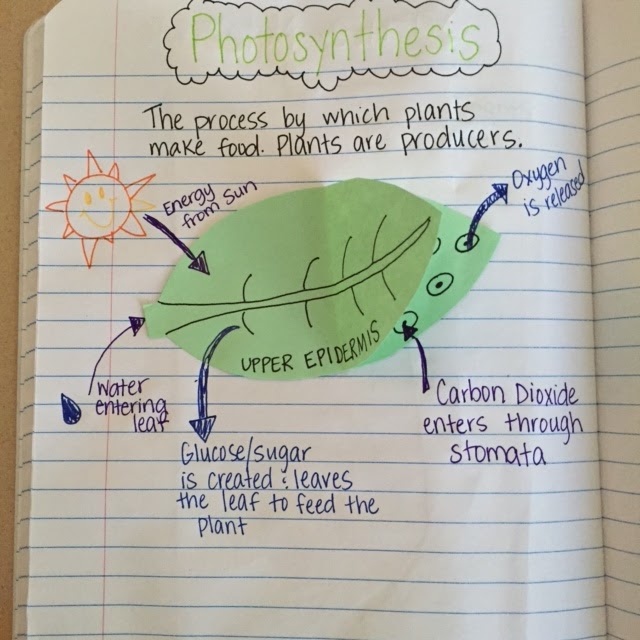 Photosynthesis
The process by which plants
make food. Plants are producers.
Energy
from Sun
Oxygen
is released
UPPER EPIDERMIS
Water
entering
leaf
Carbon Dioxide
enters through
stomata
Glucose/sugar
is created & leaves
the leaf to feed the
plant